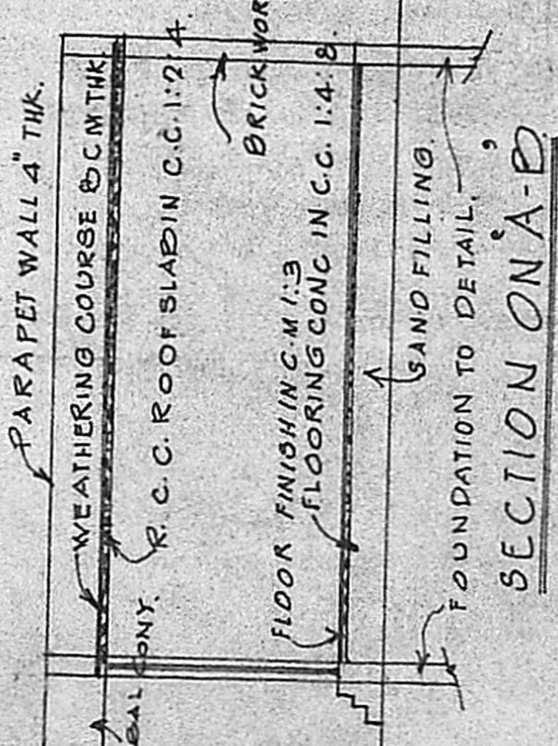 PARAPET WALL 4" THK.
WEATHERING COURSE & CM THK.
R. C. C. ROOF SLAB IN C.C. 1:2:4.
BALCONY.
BRICK WOR
FLOOR FINISH IN C.M 1:3
FLOORING CONC IN C.C. 1:4:8.
SAND FILLING.
FOUNDATION TO DETAIL.
SECTION ON 'A-B'